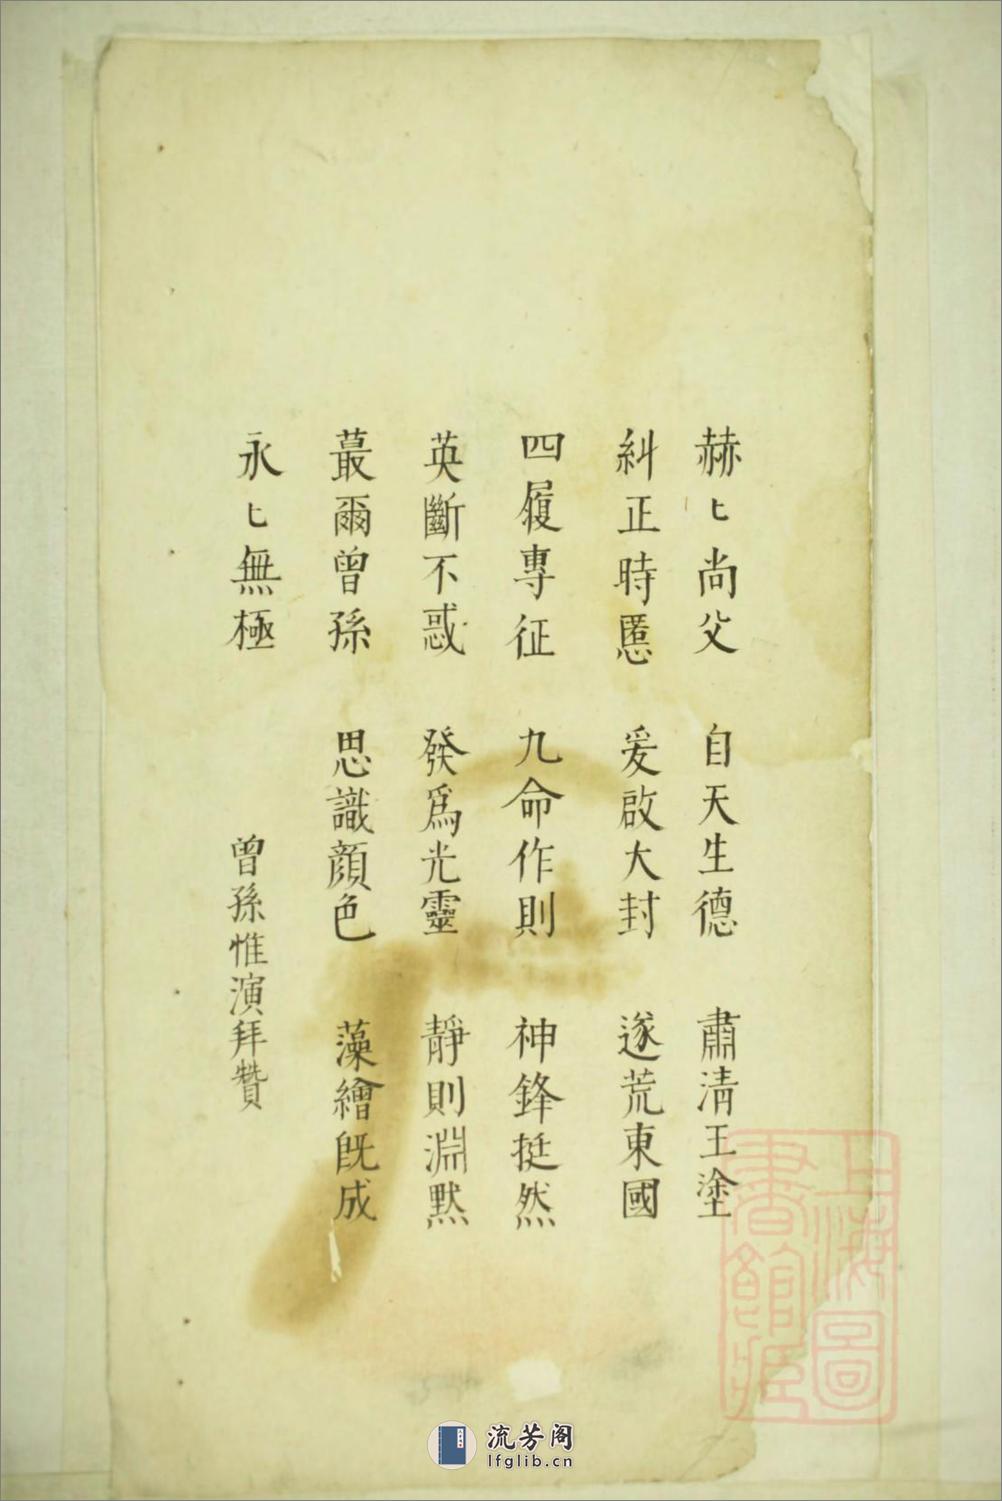 赫〻尚父　自天生德　肅清王塗
糾正時慝　爰啟大封　遂荒東國
四履專征　九命作則　神鋒挺然
英斷不惑　發爲光靈　靜則淵默
蕞爾曾孫　思識顔色　藻繪旣成
永〻無極
曾孫惟演拜贊
上海圖書館藏
流芳阁
lfglib.cn